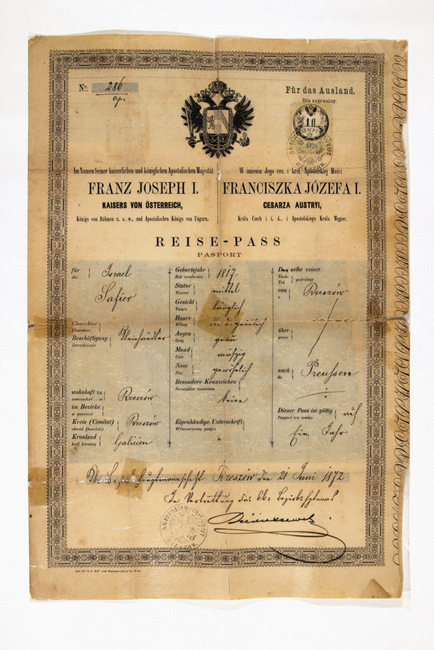 No. 286
Für das Ausland.
Dla zagranicy.
1 fl.
Im Namen Seiner kaiserlichen und königlichen Apostolischen Majestät
FRANZ JOSEPH I.
KAISERS VON ÖSTERREICH,
Königs von Böhmen u. s. w., und Apostolischen Königs von Ungarn.
W imieniu Jego ces. i król. Apostolskiej Mości
FRANCISZKA JÓZEFA I.
CESARZA AUSTRYI,
Króla Czech i t. d., i Apostolskiego Króla Węgier.
REISE-PASS
PASPORT
für Israel
dla
Safier
Charakter
Charakter
Beschäftigung
Zatrudnienie
wohnhaft zu Rzeszów
zamieszkał w
im Bezirke
w powiecie
Kreis (Comitat) Rzeszów
obwód (komitat)
Kronland Galizien
kraj koronny
Geburtsjahr 1817
Rok urodzenia
Statur mittel
Wzrost
Gesicht länglich
Twarz
Haare
Włosy
Augen grau
Oczy
Mund mäßig
Usta
Nase gewöhnlich
Nos
Besondere Kennzeichen
Szczególne znamiona
keine
Eigenhändige Unterschrift
Własnoręczny podpis
Derselbe reiset
Tenże podróżuje
von Rzeszów
z
über
przez
nach Preussen
do
Dieser Pass ist gültig auf
Paszport ten ważny
Ein Jahr
Rzeszów den 21 Juni 1872
In Vertretung des kk. Bezirkshauptmanns